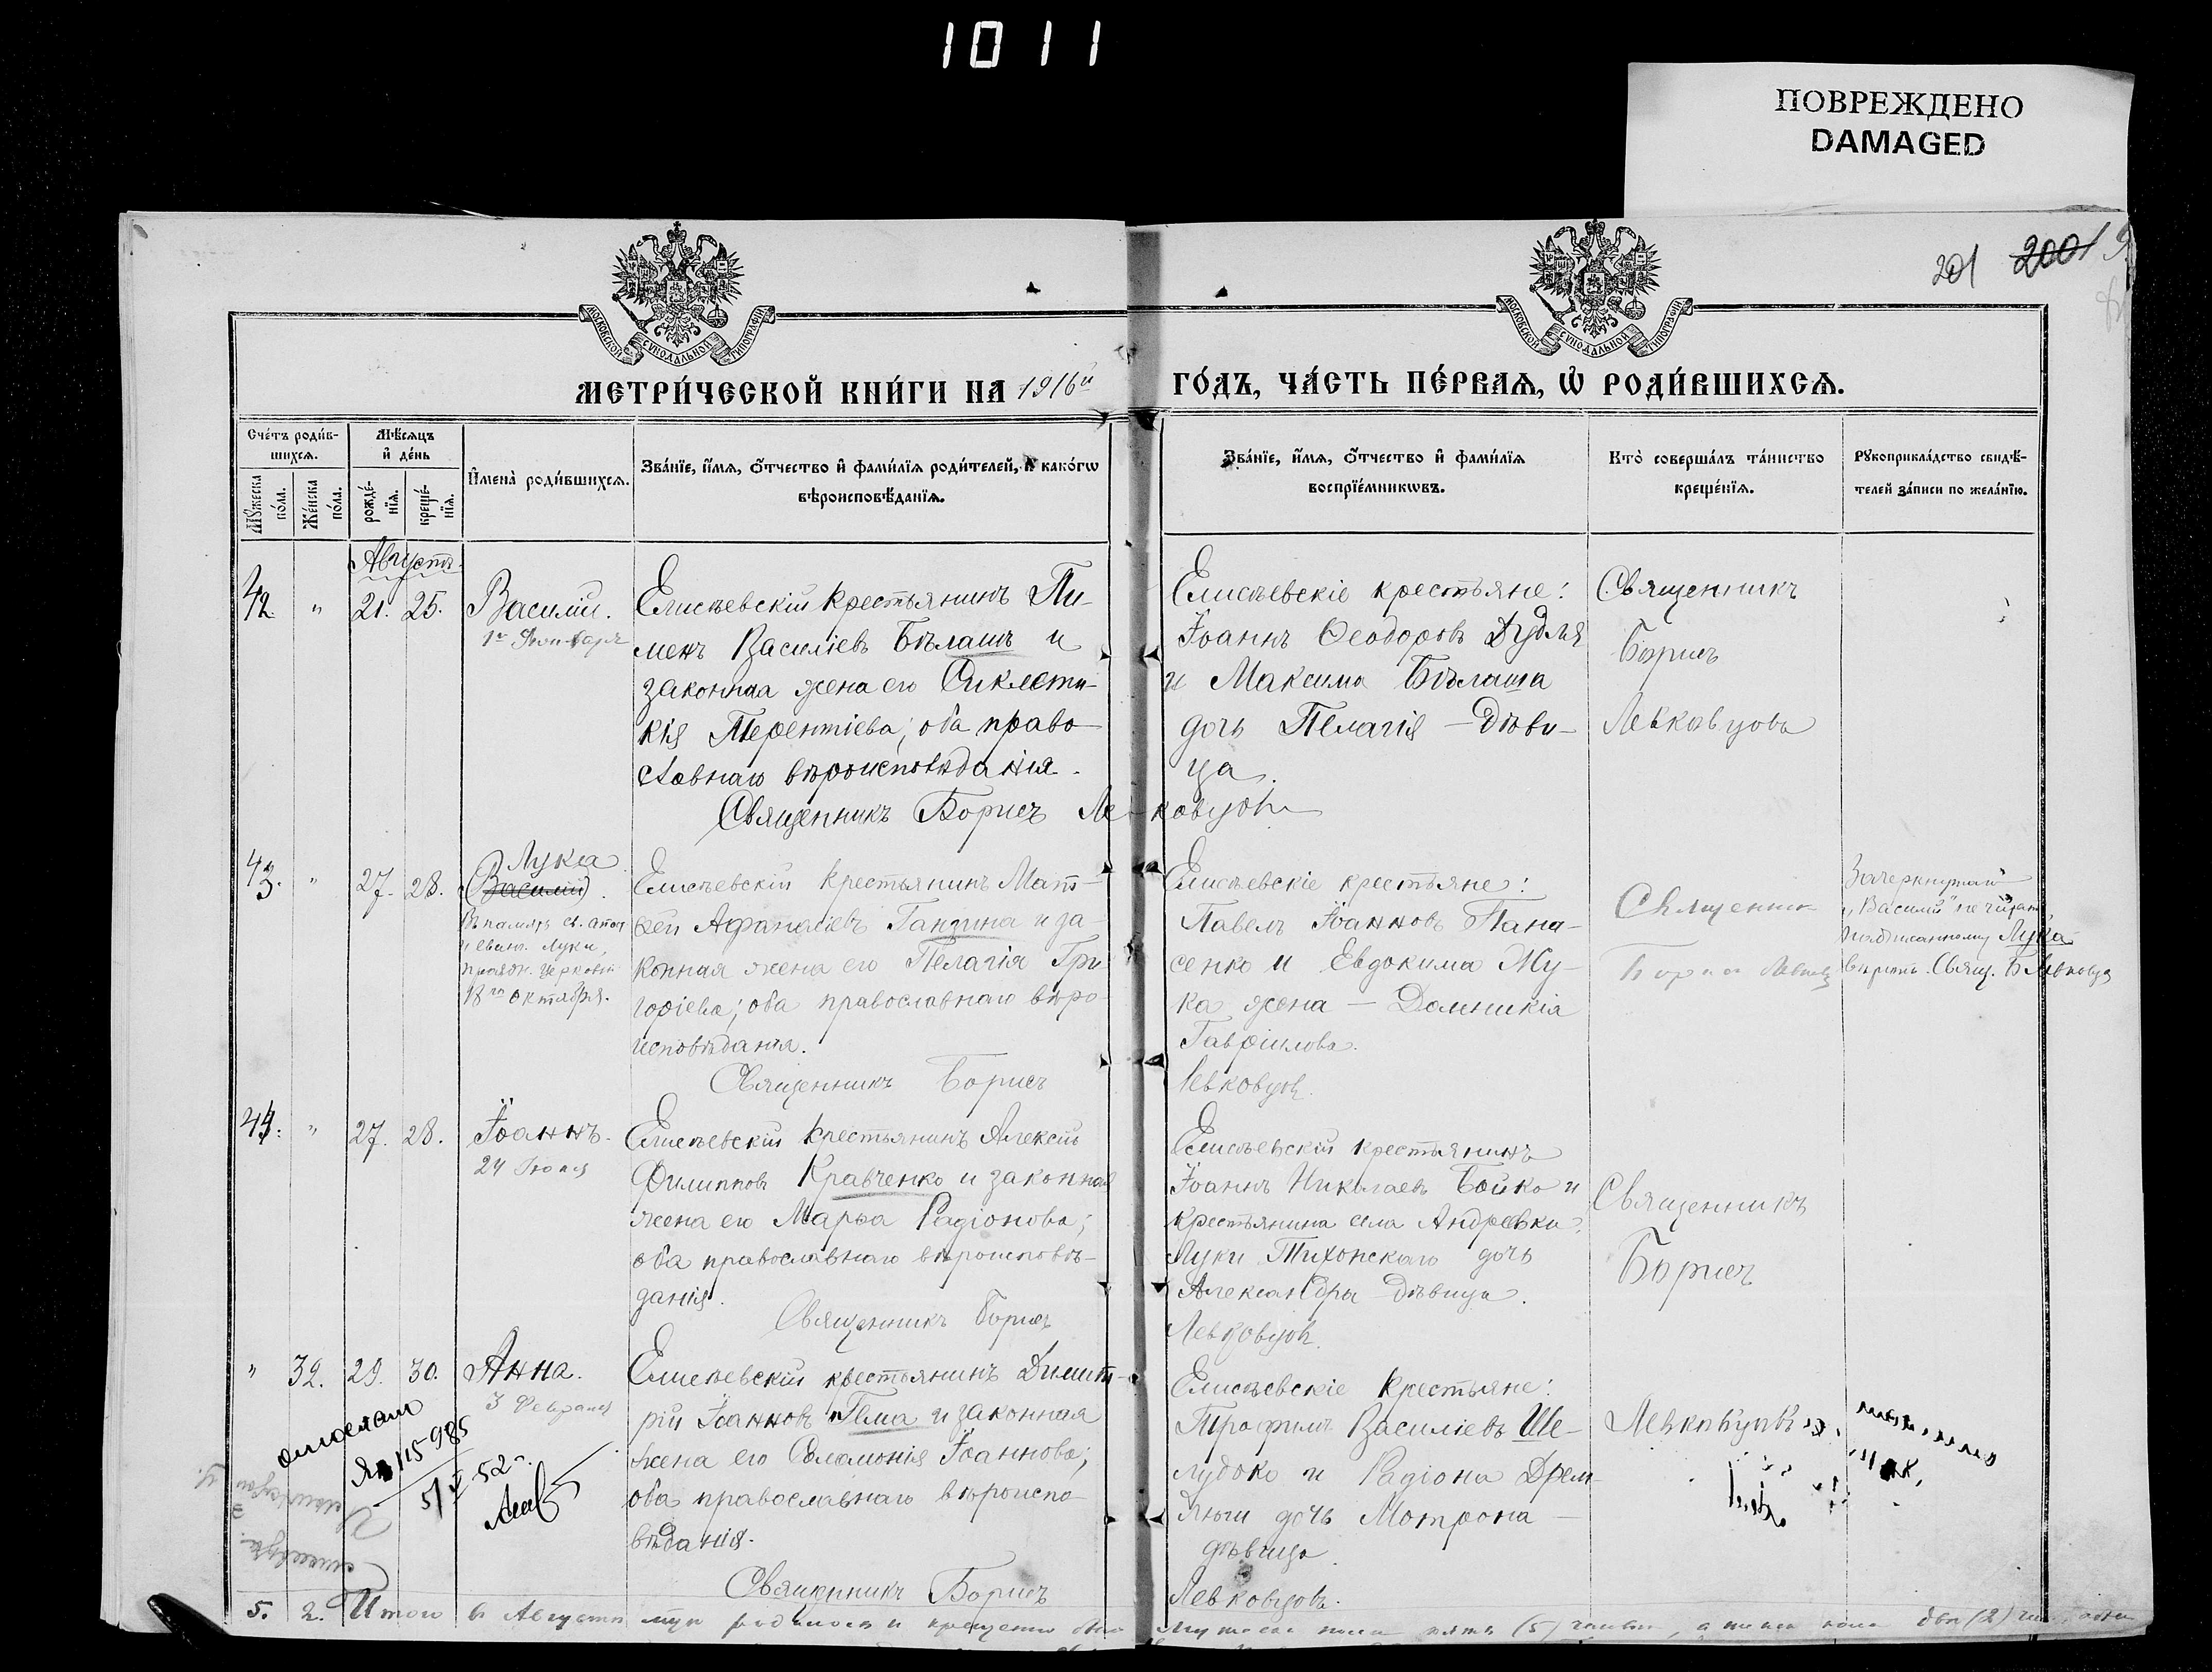 1011
ПОВРЕЖДЕНО
DAMAGED
201 2001
МОСКОВСКОЙ СѴНОДАЛЬНОЙ ТИПОГРАФІИ
МОСКОВСКОЙ СѴНОДАЛЬНОЙ ТИПОГРАФІИ
МЕТРИ́ЧЕСКОЙ КНИ́ГИ НА 1916й ГО́ДЪ, ЧА́СТЬ ПЕ́РВАѦ, Ѡ҆ РОДИ́ВШИХСѦ.
Сче́тъ роди́в-
шихсѧ.
Мꙋ́жеска по́ла.
Же́нска по́ла.
Мѣ́сѧцъ
и҆ де́нь
рожде́-
нїѧ.
креще́-
нїѧ.
И҆мена̀ роди́вшихсѧ.
Зва́нїе, и҆́мѧ, ѻ҆́тчество и҆ фами́лїѧ роди́телей, и҆ како́гѡ
вѣроисповѣ́данїѧ.
Зва́нїе, и҆́мѧ, ѻ҆́тчество и҆ фами́лїѧ
воспрїе́мникѡвъ.
Кто̀ соверша́лъ та́инство
креще́нїѧ.
Рꙋкоприкла́дство свидѣ́-
телей за́писи по жела́нїю.
Августъ.
42. " 21. 25. Василій.
1го Января
Елисѣевскій крестьянинъ Пи-
менъ Василіевъ Бѣлашъ и
законная жена его Синклети-
кія Терентіева; оба право-
славнаго вѣроисповѣданія.
Священникъ Борисъ Левковцовъ
Елисѣевскіе крестьяне:
Іоаннъ Ѳеодоровъ Дудля
и Максима Бѣлаша
дочь Пелагія - дѣви-
ца.
Священникъ
Борисъ
Левковцовъ
43. " 27. 28. Лука
(Василій).
Въ память св. апост.
и еванг. Луки,
праздн. церковію
18го октября.
Елисѣевскій крестьянинъ Мат-
ѳей Аѳанасіевъ Ганзина и за-
конная жена его Пелагія Гри
горіева; оба православнаго вѣро-
исповѣданія.
Священникъ Борисъ
Елисѣевскіе крестьяне:
Павелъ Іоанновъ Пана-
сенко и Евдокима Жу-
ка жена - Домникія
Гавріилова.
Левковцовъ.
Священник
Борисъ Левковц
Зачеркнутаго
"Василій" не читат
надписанному Лука
вѣрить. Свящ. Б. Левковцов
44. " 27. 28. Іоаннъ.
24 Іюня
Елисѣевскій крестьянинъ Алексій
Филипповъ Кравченко и законная
жена его Марѳа Радіонова;
оба православнаго вѣроисповѣ-
данія.
Священникъ Борисъ
Елисѣевскій крестьянинъ
Іоаннъ Николаевъ Бойко и
крестьянина села Андреевки
Луки Тихонскаго дочь
Александра дѣвица.
Левковцовъ.
Священникъ
Борисъ
" 32. 29. 30. Анна.
3 Февраля
Елисѣевскій крестьянинъ Димит-
рій Іоанновъ Тема и законная
жена его Соломонія Іоаннова;
оба православнаго вѣроиспо-
вѣданія.
Священникъ Борисъ
Елисѣевскіе крестьяне:
Трофимъ Василіевъ Ше-
лудько и Радіона Дрем-
люги дочь Мотрона -
дѣвица.
Левковцовъ.
Левковцовъ
115985
5/V 52 г.
5. 2. Итого въ Августѣ м-цѣ родилось и крещено было мужеска пола пять (5) человѣк, а женска пола двѣ (2)